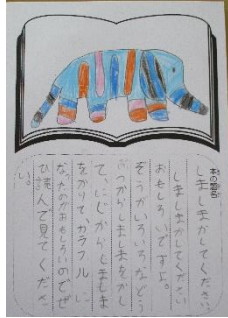 本の題名
しましまかしてください
しましまかしてください
おもしろいですよ。
ぞうがいろいろなどう
ぶつからしましまをかし
て、にじからしましま
をかりて、カラフルに
なったのがおもしろいのでぜ
ひ読んで見てくださ
い。